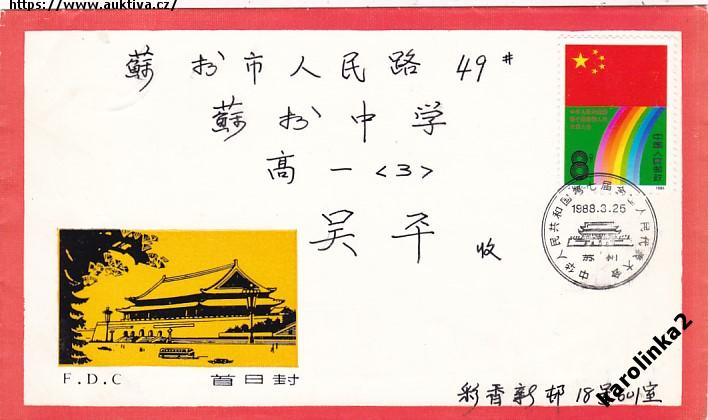 https://www.auktiva.cz/
蘇州市人民路 49#
蘇州中学
高一<3>
吴平 收
中华人民共和国
第七届全国人民
代表大会
中国人民邮政
8分
1988
中华人民共和国第七届全国人民代表大会
1988.3.25
苏州
F.D.C 首日封
彩香新邨 18号601室
karolinka2